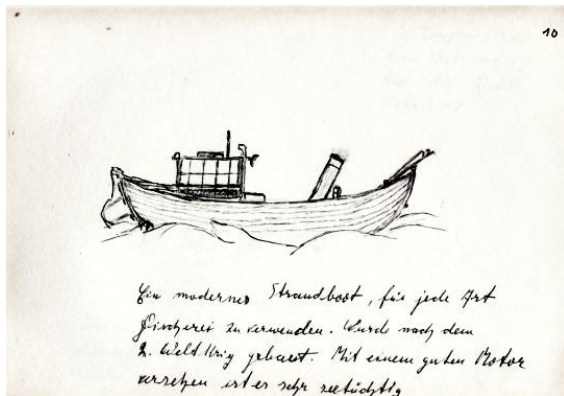 10
Ein modernes Strandboot, für jede Art
Fischerei zu verwenden. Wurde nach dem
2. Weltkrig gebaut. Mit einem guten Motor
versehen ist er sehr seetüchtig